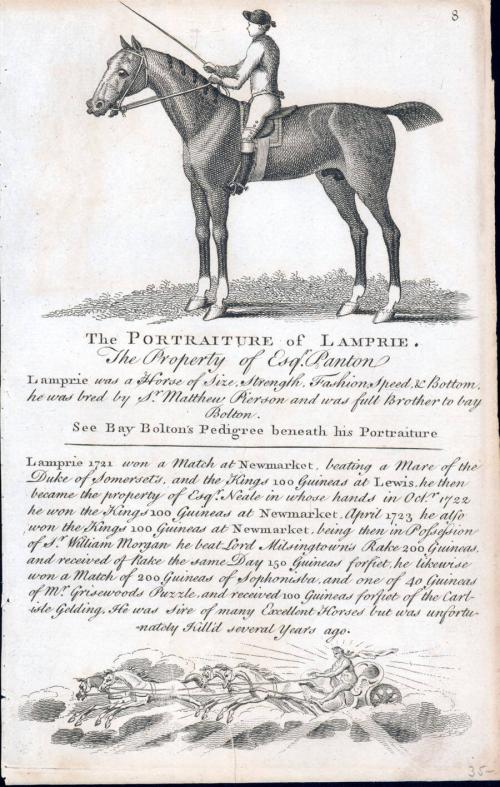 8
The PORTRAITURE of LAMPRIE.
The Property of Esqr. Panton
Lamprie was a Horse of Size, Strength, Fashion, Speed, & Bottom,
he was bred by Sr. Matthew Pierson and was full Brother to bay
Bolton.
See Bay Bolton's Pedigree beneath his Portraiture
Lamprie 1721 won a Match at Newmarket, beating a Mare of the
Duke of Somersets, and the Kings 100 Guineas at Lewis, he then
became the property of Esqr. Neale in whose hands in Octr. 1722
he won the Kings 100 Guineas at Newmarket, April 1723 he also
won the Kings 100 Guineas at Newmarket, being then in Possession
of Sr. William Morgan he beat Lord Milsingtown's Rake 200 Guineas,
and received of Rake the same Day 150 Guineas forfiet, he likewise
won a Match of 200 Guineas of Sophonisba, and one of 40 Guineas
of Mr. Grisewoods Puzzle, and received 100 Guineas forfiet of the Carl-
isle Gelding, He was Sire of many Excellent Horses but was unfortu-
nately Kill'd several Years ago.
35-